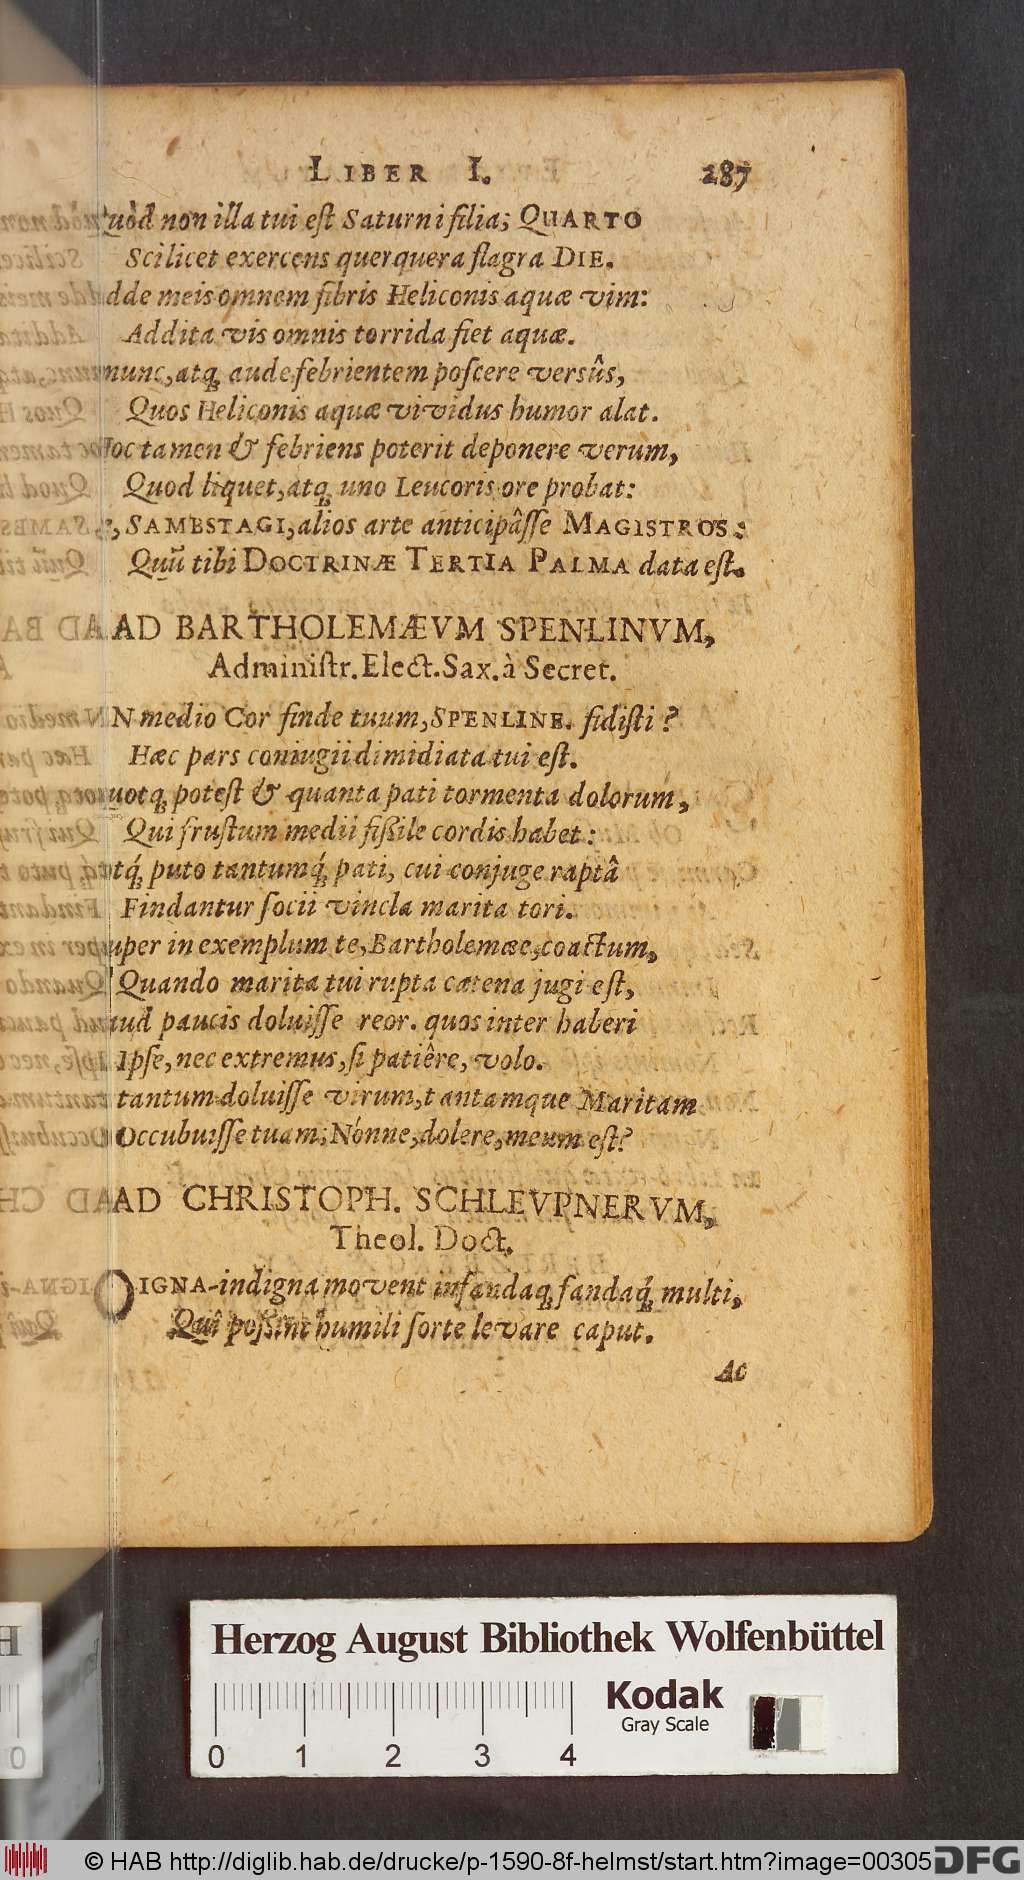 LIBER I. 287
Quòd non illa tui eſt Saturni filia; QUARTO
Scilicet exercens querquera flagra DIE.
Adde meis omnem fibris Heliconis aquæ vim:
Addita vis omnis torrida fiet aquæ.
I nunc, atq; aude febrientem poſcere versûs,
Quos Heliconis aquæ vividus humor alat.
Hoc tamen & febriens poterit deponere verum,
Quod liquet, atq; uno Leucoris ore probat:
SAMBSTAGI, alios arte anticipâſſe MAGISTROS:
Quũ tibi DOCTRINÆ TERTIA PALMA data eſt.
AD BARTHOLEMÆVM SPENLINVM,
Adminiſtr. Elect. Sax. à Secret.
N medio Cor finde tuum, SPENLINE. fidiſti?
Hæc pars coniugii dimidiata tui eſt.
Quotq; poteſt & quanta pati tormenta dolorum,
Qui fruſtum medii fißile cordis habet:
Totq́; puto tantumq́; pati, cui conjuge raptâ
Findantur ſocii vincla marita tori.
Nuper in exemplum te, Bartholemæe, coactum,
Quando marita tui rupta catena jugi eſt,
Haud paucis doluiſſe reor. quos inter haberi
Ipſe, nec extremus, ſi patiêre, volo.
tantum doluiſſe virum, tantamque Maritam
Occubuiſſe tuam; Nónne, dolere, meum eſt?
AD CHRISTOPH. SCHLEVPNERVM,
Theol. Doct.
DIGNA-indigna movent infandaq; fandaq́; multi,
Quî poßint humili ſorte levare caput.
Ac
Herzog August Bibliothek Wolfenbüttel
Kodak
Gray Scale
0 1 2 3 4
© HAB http://diglib.hab.de/drucke/p-1590-8f-helmst/start.htm?image=00305 DFG